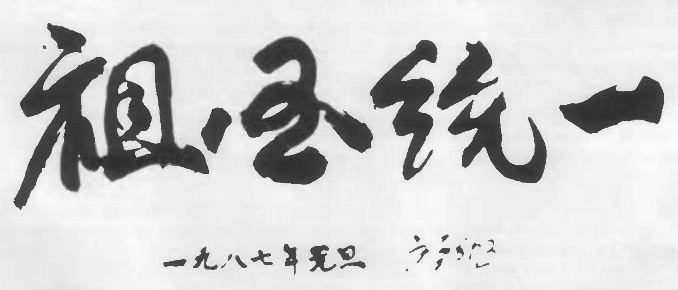 祖国统一
一九八七年元旦